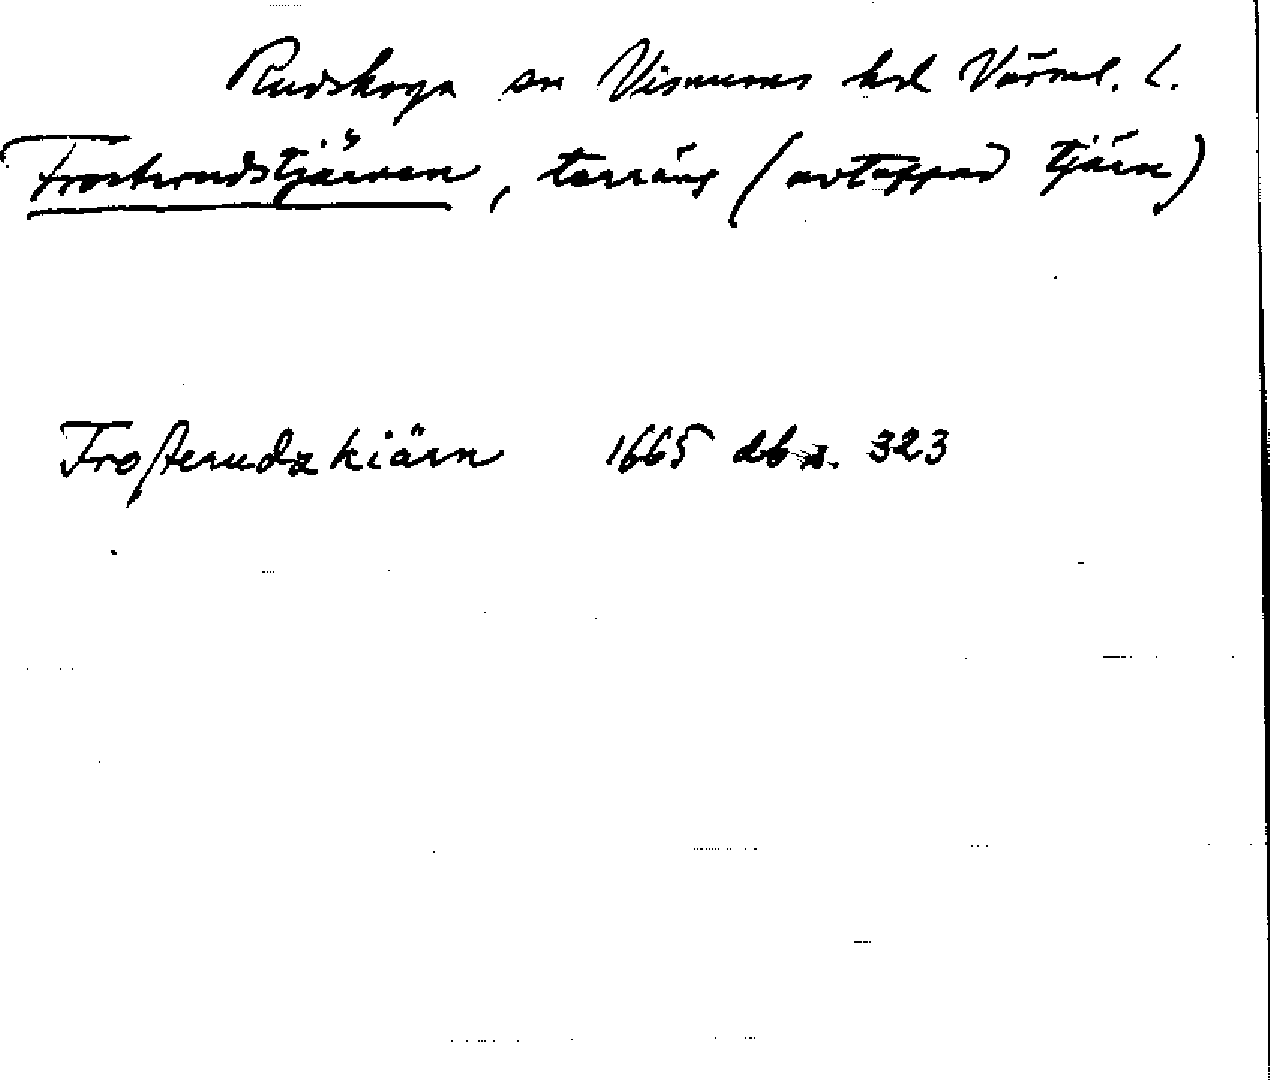 Rudskoga sn Visnums hd Värml. l.
Frosterudstjärnen, terräng (avtappad tjärn)
Frosterudz kiärn 1665 db s. 323